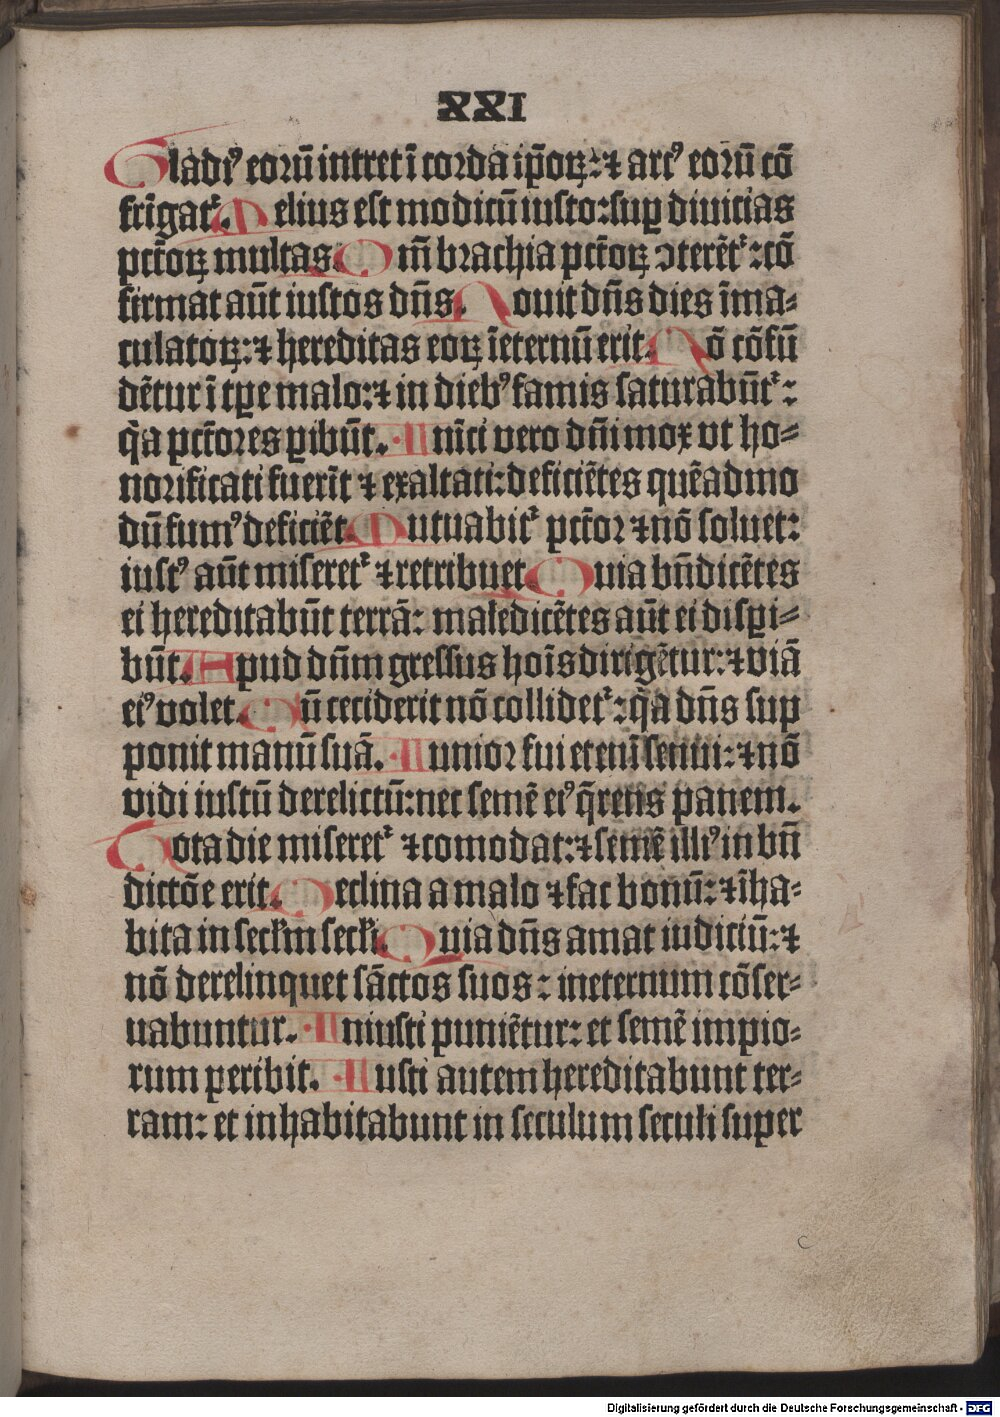 XXI
Gladiꝰ eorū intret ī corda ip̄oꝝ: ⁊ arcꝰ eorū cō
frīgatᷣ. Melius est modicū iusto: suꝑ diuicias
pctōꝝ multas. Qm̄ brachia pctōꝝ ↄterētᷣ: cō
firmat aūt iustos dn̄s. Nouit dn̄s dies īma⸗
culatoꝝ: ⁊ hereditas eoꝝ īeternū erit. Nō cōfū
dētur ī tꝑe malo: ⁊ in diebꝰ famis saturabūtᷣ:
q̄a pctōres ꝑibūt. Inīci vero dn̄i mox vt ho⸗
norificati fuerīt ⁊ exaltati: deficiētes quēadmo
dū fumꝰ deficiēt. Mutuabitᷣ pctōr ⁊ nō soluet:
iustꝰ aūt miseretᷣ ⁊ retribuet. Quia bn̄dicētes
ei hereditabūt terrā: maledicētes aūt ei disꝑi⸗
būt. Apud dn̄m gressus hoīs dirigētur: ⁊ viā
eiꝰ volet. Cū ceciderit nō collidetᷣ: q̄a dn̄s sup
ponit manū suā. Iunior fui etenī senui: ⁊ nō
vidi iustū derelictū: nec semē eiꝰ q̄rens panem.
Tota die miseretᷣ ⁊ comodat: ⁊ semē illiꝰ in bn̄
dictōe erit. Declina a malo ⁊ fac bonū: ⁊ īha⸗
bita in seclm̄ secli. Quia dn̄s amat iudiciū: ⁊
nō derelinquet sāctos suos: ineternum cōser⸗
uabuntur. Iniusti puniētur: et semē impio⸗
rum peribit. Iusti autem hereditabunt ter⸗
ram: et inhabitabunt in seculum seculi super
Digitalisierung gefördert durch die Deutsche Forschungsgemeinschaft - DFG